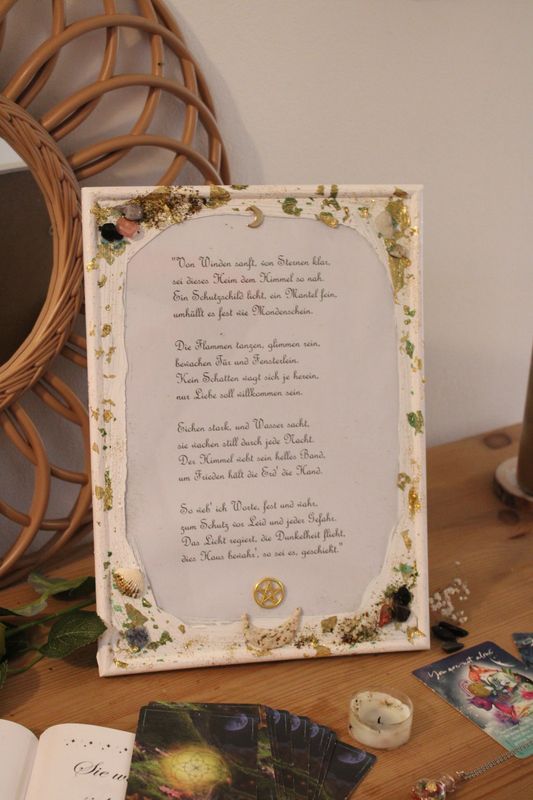 "Von Winden sanft, von Sternen klar,
sei dieses Heim dem Himmel so nah.
Ein Schutzschild licht, ein Mantel fein,
umhüllt es fest wie Mondenschein.
Die Flammen tanzen, glimmen rein,
bewachen Tür und Fensterlein.
Kein Schatten wagt sich je herein,
nur Liebe soll willkommen sein.
Eichen stark, und Wasser sacht,
sie wachen still durch jede Nacht.
Der Himmel webt sein helles Band,
um Frieden hält die Erd' die Hand.
So web' ich Worte, fest und wahr,
zum Schutz vor Leid und jeder Gefahr.
Das Licht regiert, die Dunkelheit flieht,
dies Haus bewahr', so sei es, geschieht."
You are not alone
Sie